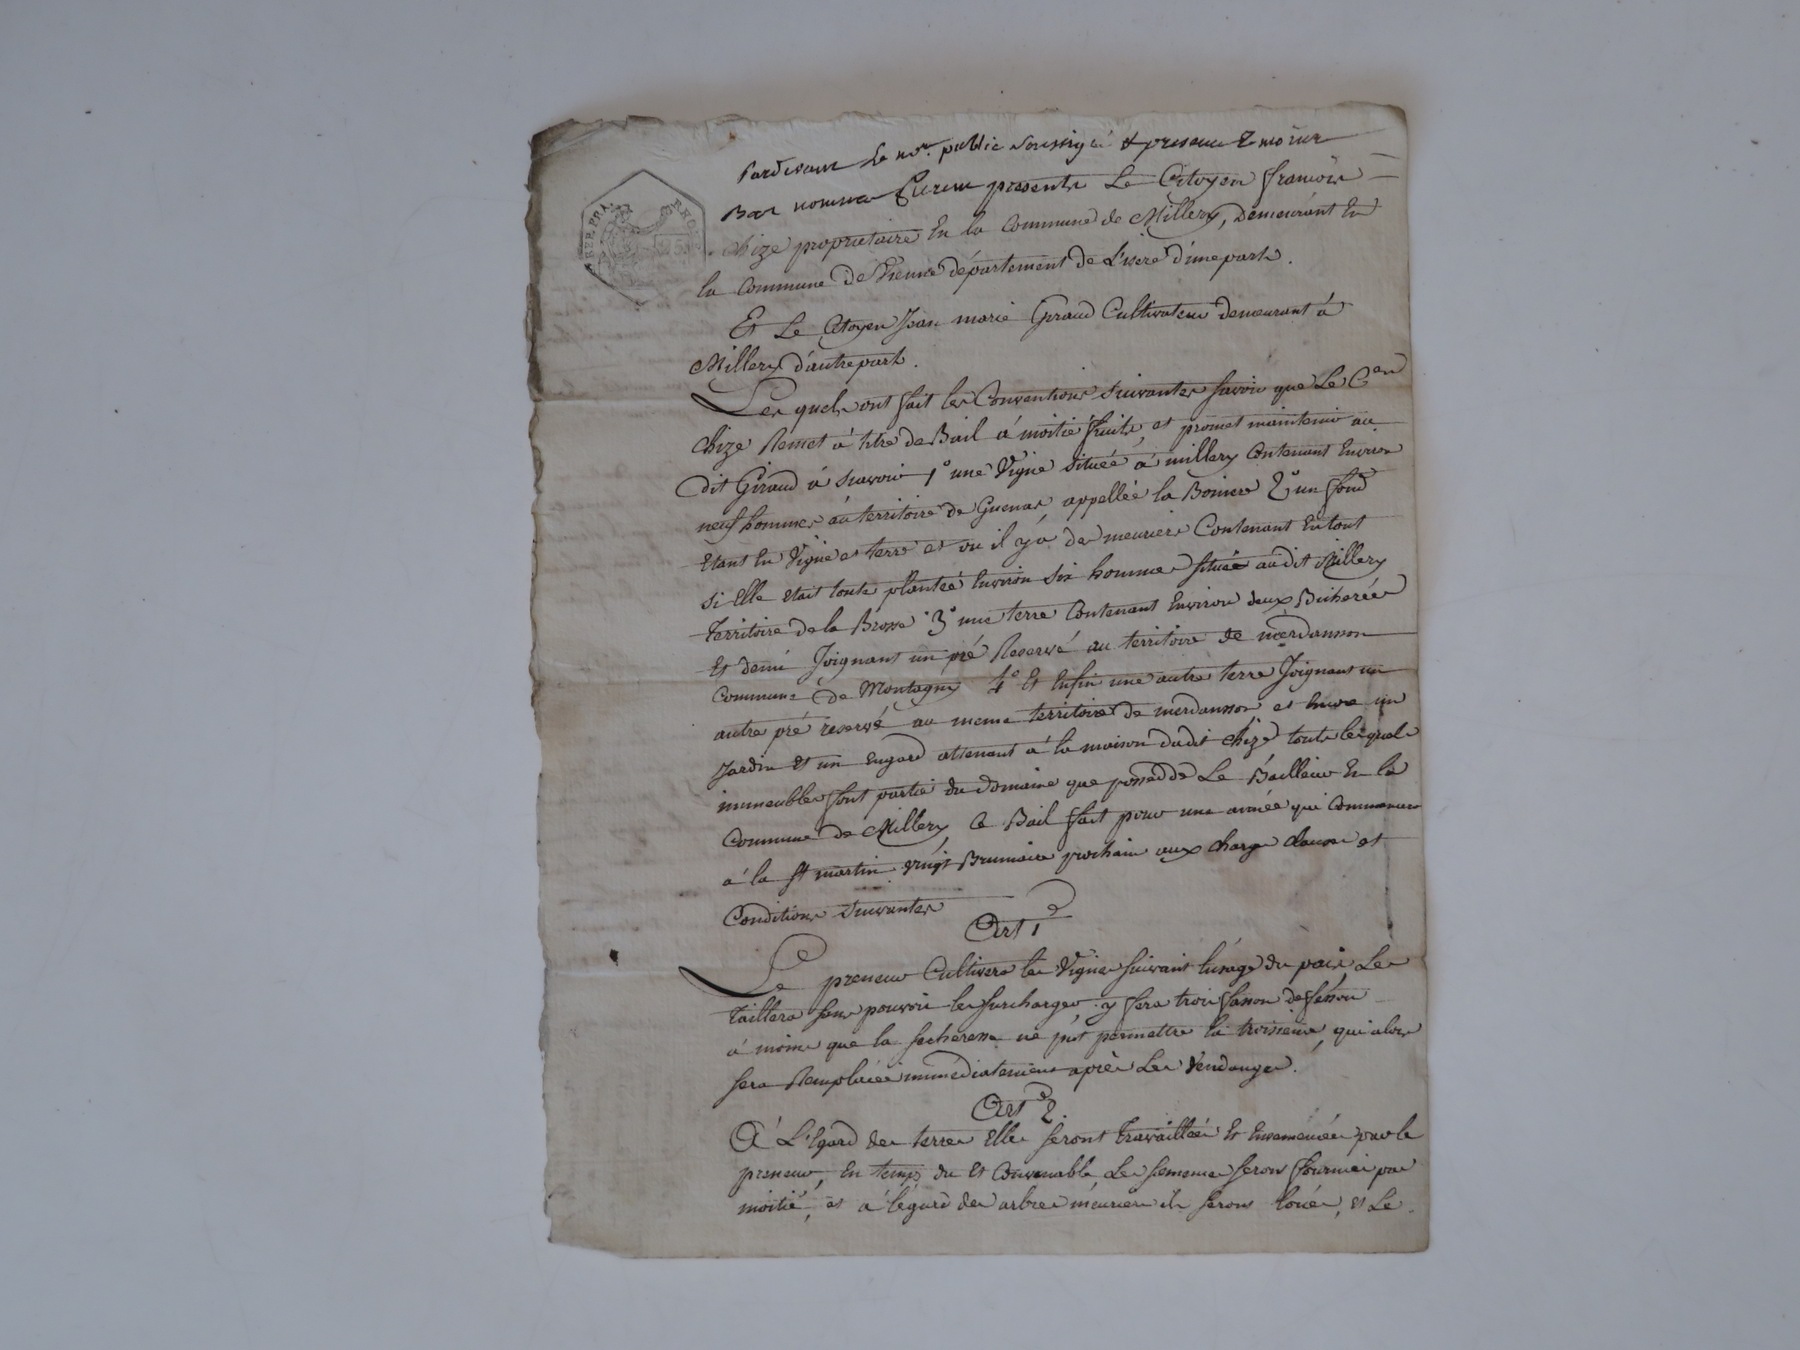 REP. FRA.
Pardevant Le no.re public soussigné & presence temoins
Bas nommés furent presents Le Citoyen francois
Chize proprietaire En la Commune de Millery, Demeurant En
la Commune de Vienne département de L'isere d'une part.
Et Le Citoyen Jean marie Giraud Cultivateur demeurant á
Millery d'autre part.
Les quels ont fait les Conventions Suivantes savoir que Le C.en
Chize Remet á titre de Bail á moitié fruits et promet maintenir au
dit Giraud á scavoir 1° une Vigne située á millery Contenant Environ
neuf hommes au territoire de Guenas, appellée la 2° un fond
Etant En Vigne et terre et ou il y a des meuriers Contenant En tout
Si Elle etait toute plantée Environ Six hommes située audit Millery
territoire de la Brosse 3° une terre Contenant Environ deux Bicherées
Et demi Joignant un pré Reservé au territoire de merdanson
Commune de Montagny 4° Et Enfin une autre terre Joignant un
autre pré reservé au meme territoire de merdanson et un
Jardin Et un Engard attenant á la maison dudit Chize toute lesquels
immeubles font partie du domaine que possedde Le Bailleur En la
Commune de Millery, Ce Bail fait pour une année qui Commencera
á la St martin vingt Brumaire prochain aux charges clauses et
Conditions Suivantes
Art 1
Le preneur Cultivera les Vignes suivant l'usage du pais Les
taillera sans pouvoir les surcharger, y fera trois fasson de fessou
á moins que la secheresse ne put permettre la troisieme, qui alors
sera Remplacée immédiatement aprés Les Vendanges.
Art 2
A L'Egard des terres Elles seront travaillées Et Ensemencées par le
preneur, En temps du Et Convenable, Les semences seront fournies par
moitié, et á l'égard des arbres meuriers ils seront loués, et Le